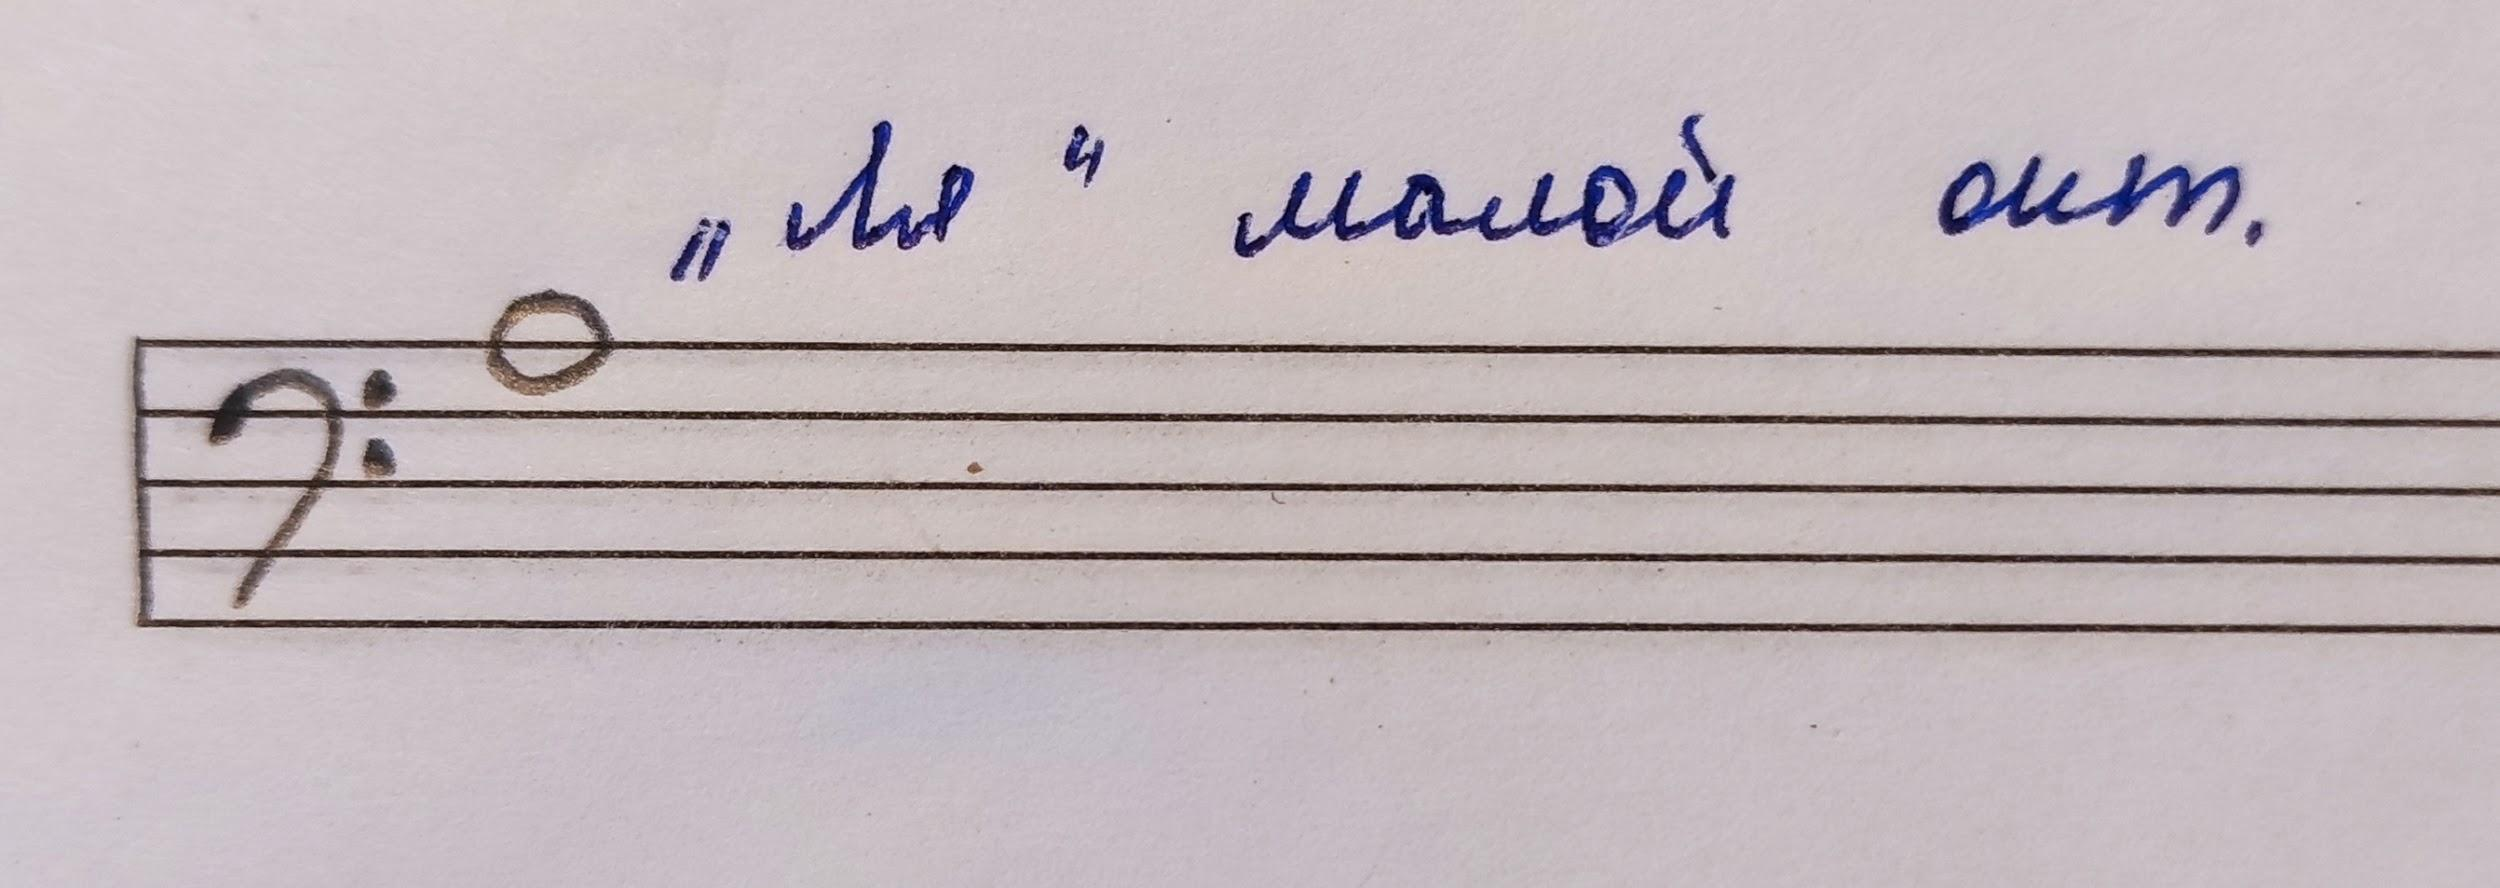 „Ля“ малой окт.